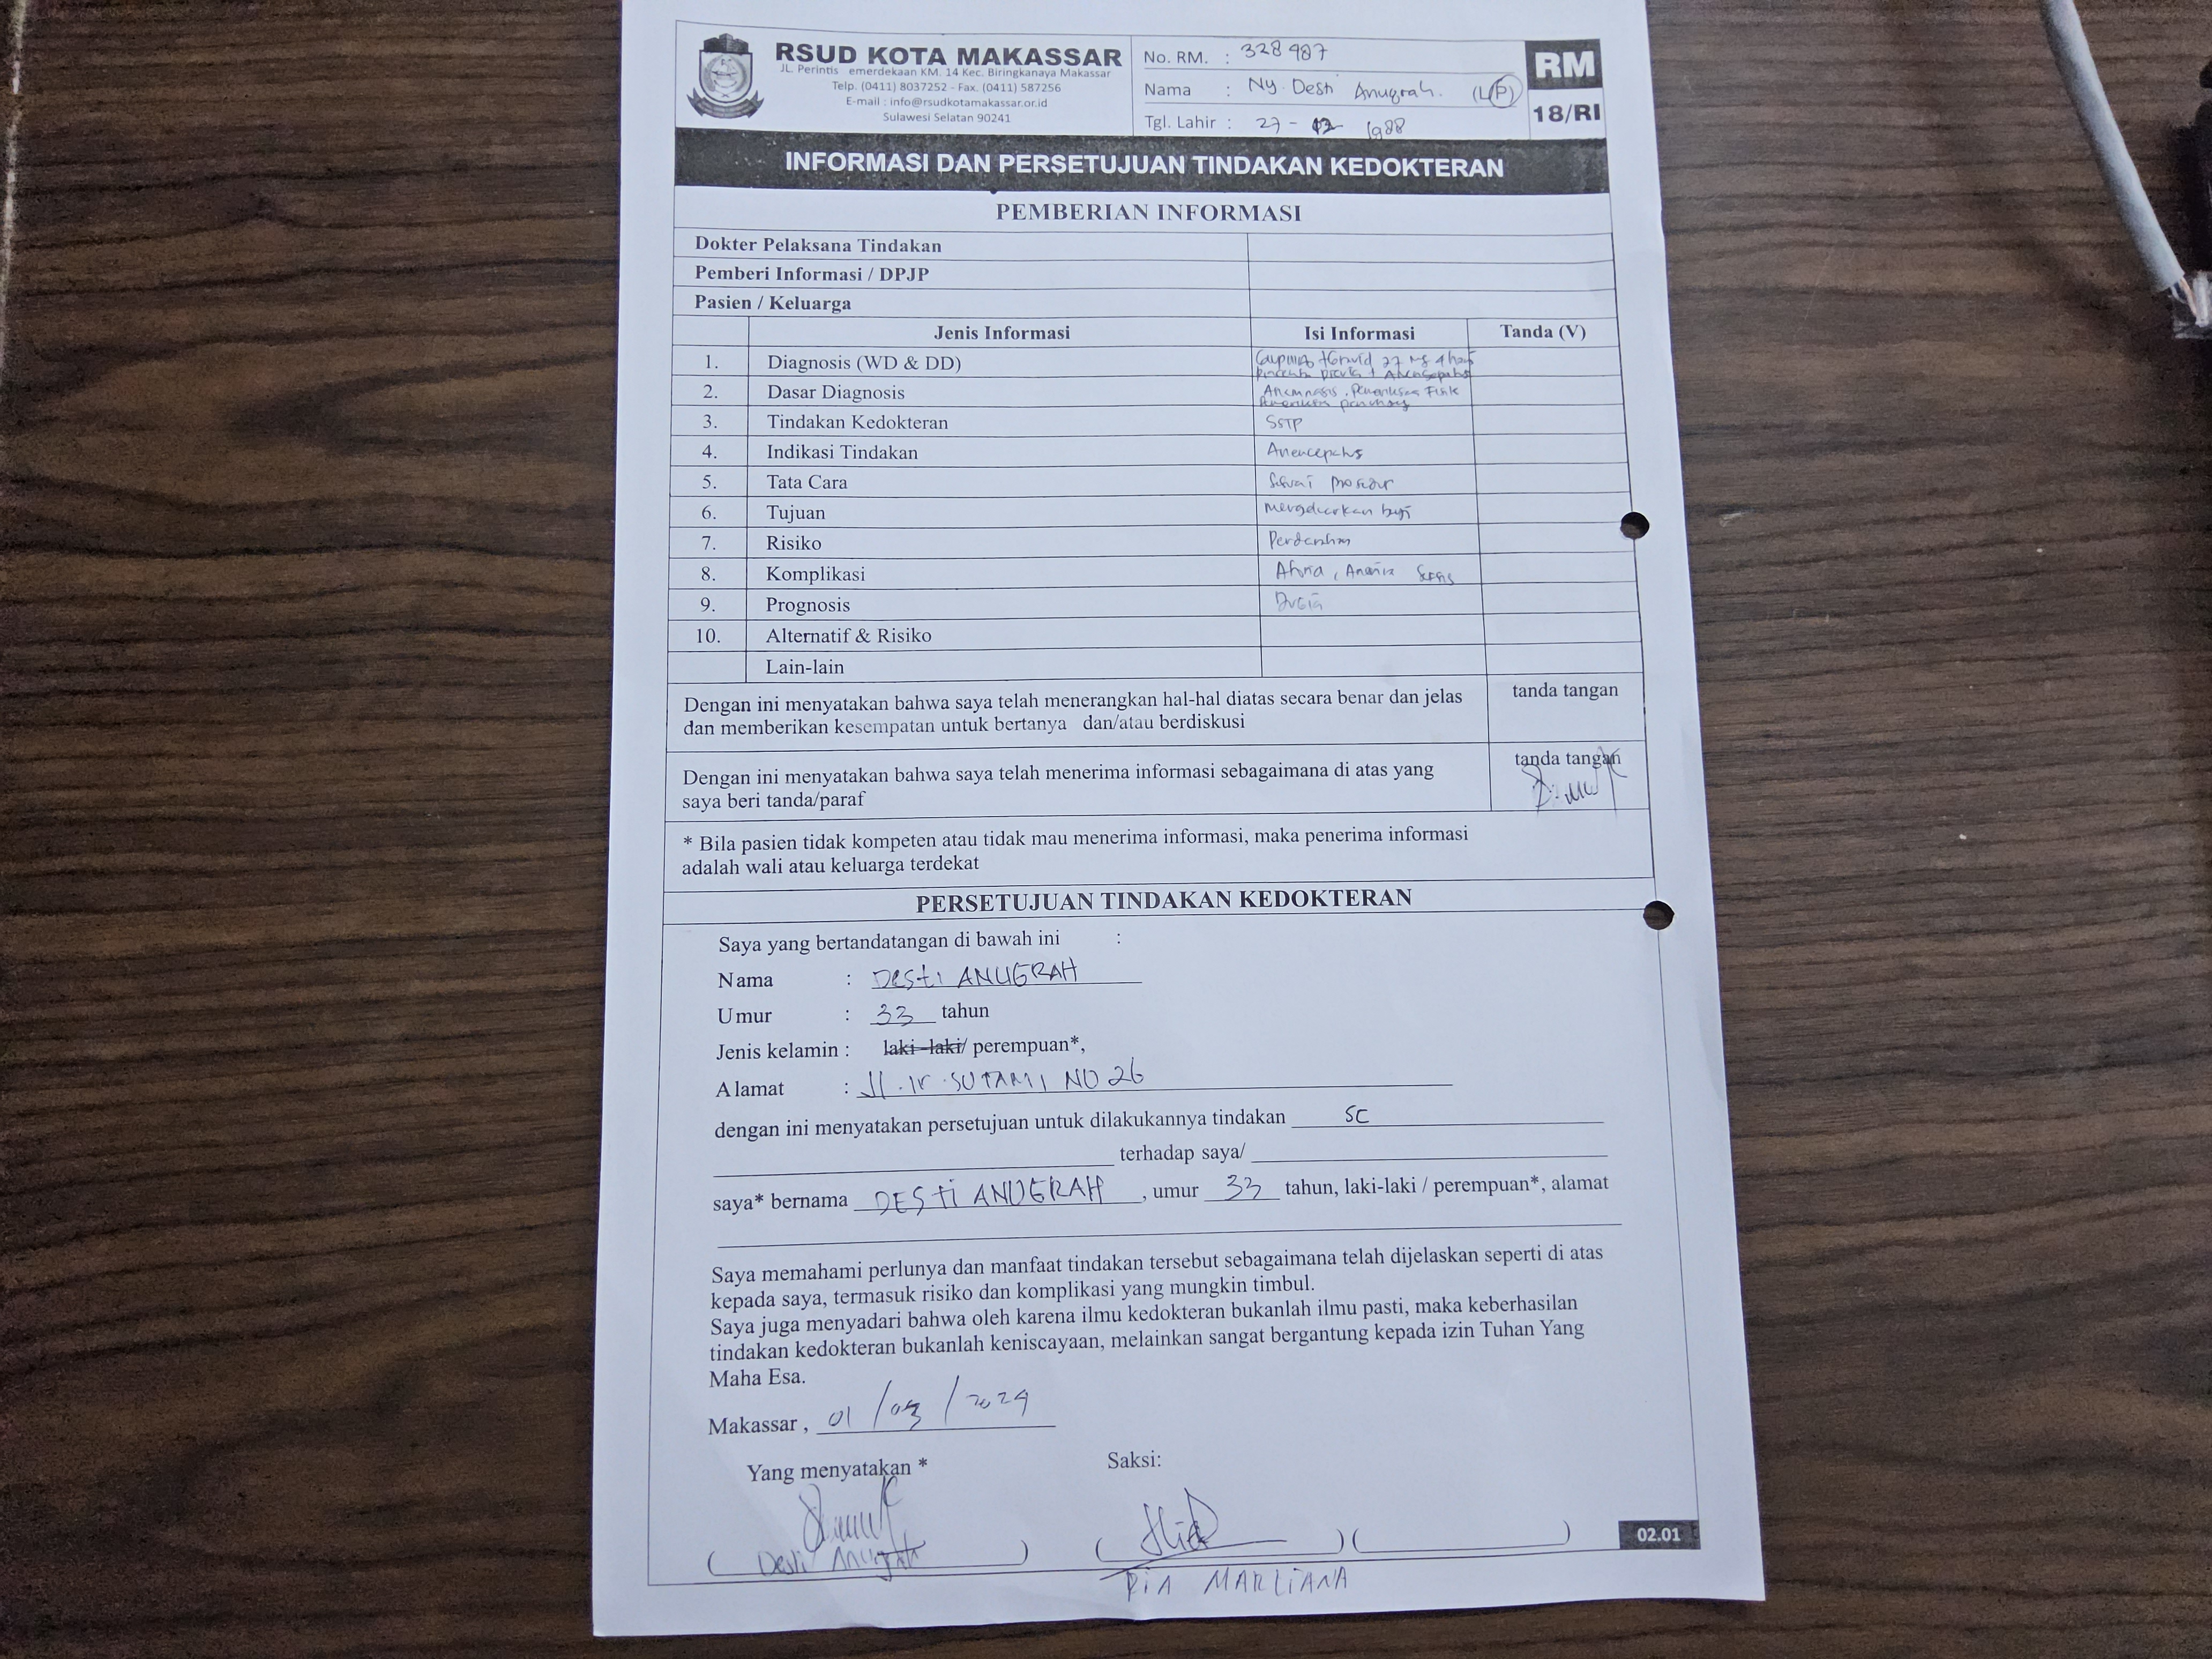 RSUD KOTA MAKASSAR
JL. Perintis emerdekaan KM. 14 Kec. Biringkanaya Makassar
Telp. (0411) 8037252 - Fax. (0411) 587256
E-mail : info@rsudkotamakassar.or.id
Sulawesi Selatan 90241
No. RM. : 328987
Nama : Ny. Desti Anugrah. (L/P)
Tgl. Lahir : 27 - 12 - 1988
RM
18/RI
INFORMASI DAN PERSETUJUAN TINDAKAN KEDOKTERAN
PEMBERIAN INFORMASI
Dokter Pelaksana Tindakan
Pemberi Informasi / DPJP
Pasien / Keluarga
Jenis Informasi Isi Informasi Tanda (V)
1. Diagnosis (WD & DD) 27
2. Dasar Diagnosis Fisik
3. Tindakan Kedokteran SSTP
4. Indikasi Tindakan
5. Tata Cara Sesuai prosedur
6. Tujuan Mengeluarkan bayi
7. Risiko Perdarahan
8. Komplikasi Sepsis
9. Prognosis Dubia
10. Alternatif & Risiko
Lain-lain
Dengan ini menyatakan bahwa saya telah menerangkan hal-hal diatas secara benar dan jelas
dan memberikan kesempatan untuk bertanya dan/atau berdiskusi
tanda tangan
Dengan ini menyatakan bahwa saya telah menerima informasi sebagaimana di atas yang
saya beri tanda/paraf
tanda tangan
* Bila pasien tidak kompeten atau tidak mau menerima informasi, maka penerima informasi
adalah wali atau keluarga terdekat
PERSETUJUAN TINDAKAN KEDOKTERAN
Saya yang bertandatangan di bawah ini :
Nama : Desti ANUGRAH
Umur : 33 tahun
Jenis kelamin : laki-laki/ perempuan*,
Alamat : Jl. Ir. SUTAMI NO 26
dengan ini menyatakan persetujuan untuk dilakukannya tindakan SC
terhadap saya/
saya* bernama DESti ANUGRAH, umur 33 tahun, laki-laki / perempuan*, alamat
Saya memahami perlunya dan manfaat tindakan tersebut sebagaimana telah dijelaskan seperti di atas
kepada saya, termasuk risiko dan komplikasi yang mungkin timbul.
Saya juga menyadari bahwa oleh karena ilmu kedokteran bukanlah ilmu pasti, maka keberhasilan
tindakan kedokteran bukanlah keniscayaan, melainkan sangat bergantung kepada izin Tuhan Yang
Maha Esa.
Makassar , 01 / 03 / 2024
Yang menyatakan * Saksi:
( Desti Anugrah ) ( ) ( )
RiA MARLiANA
02.01